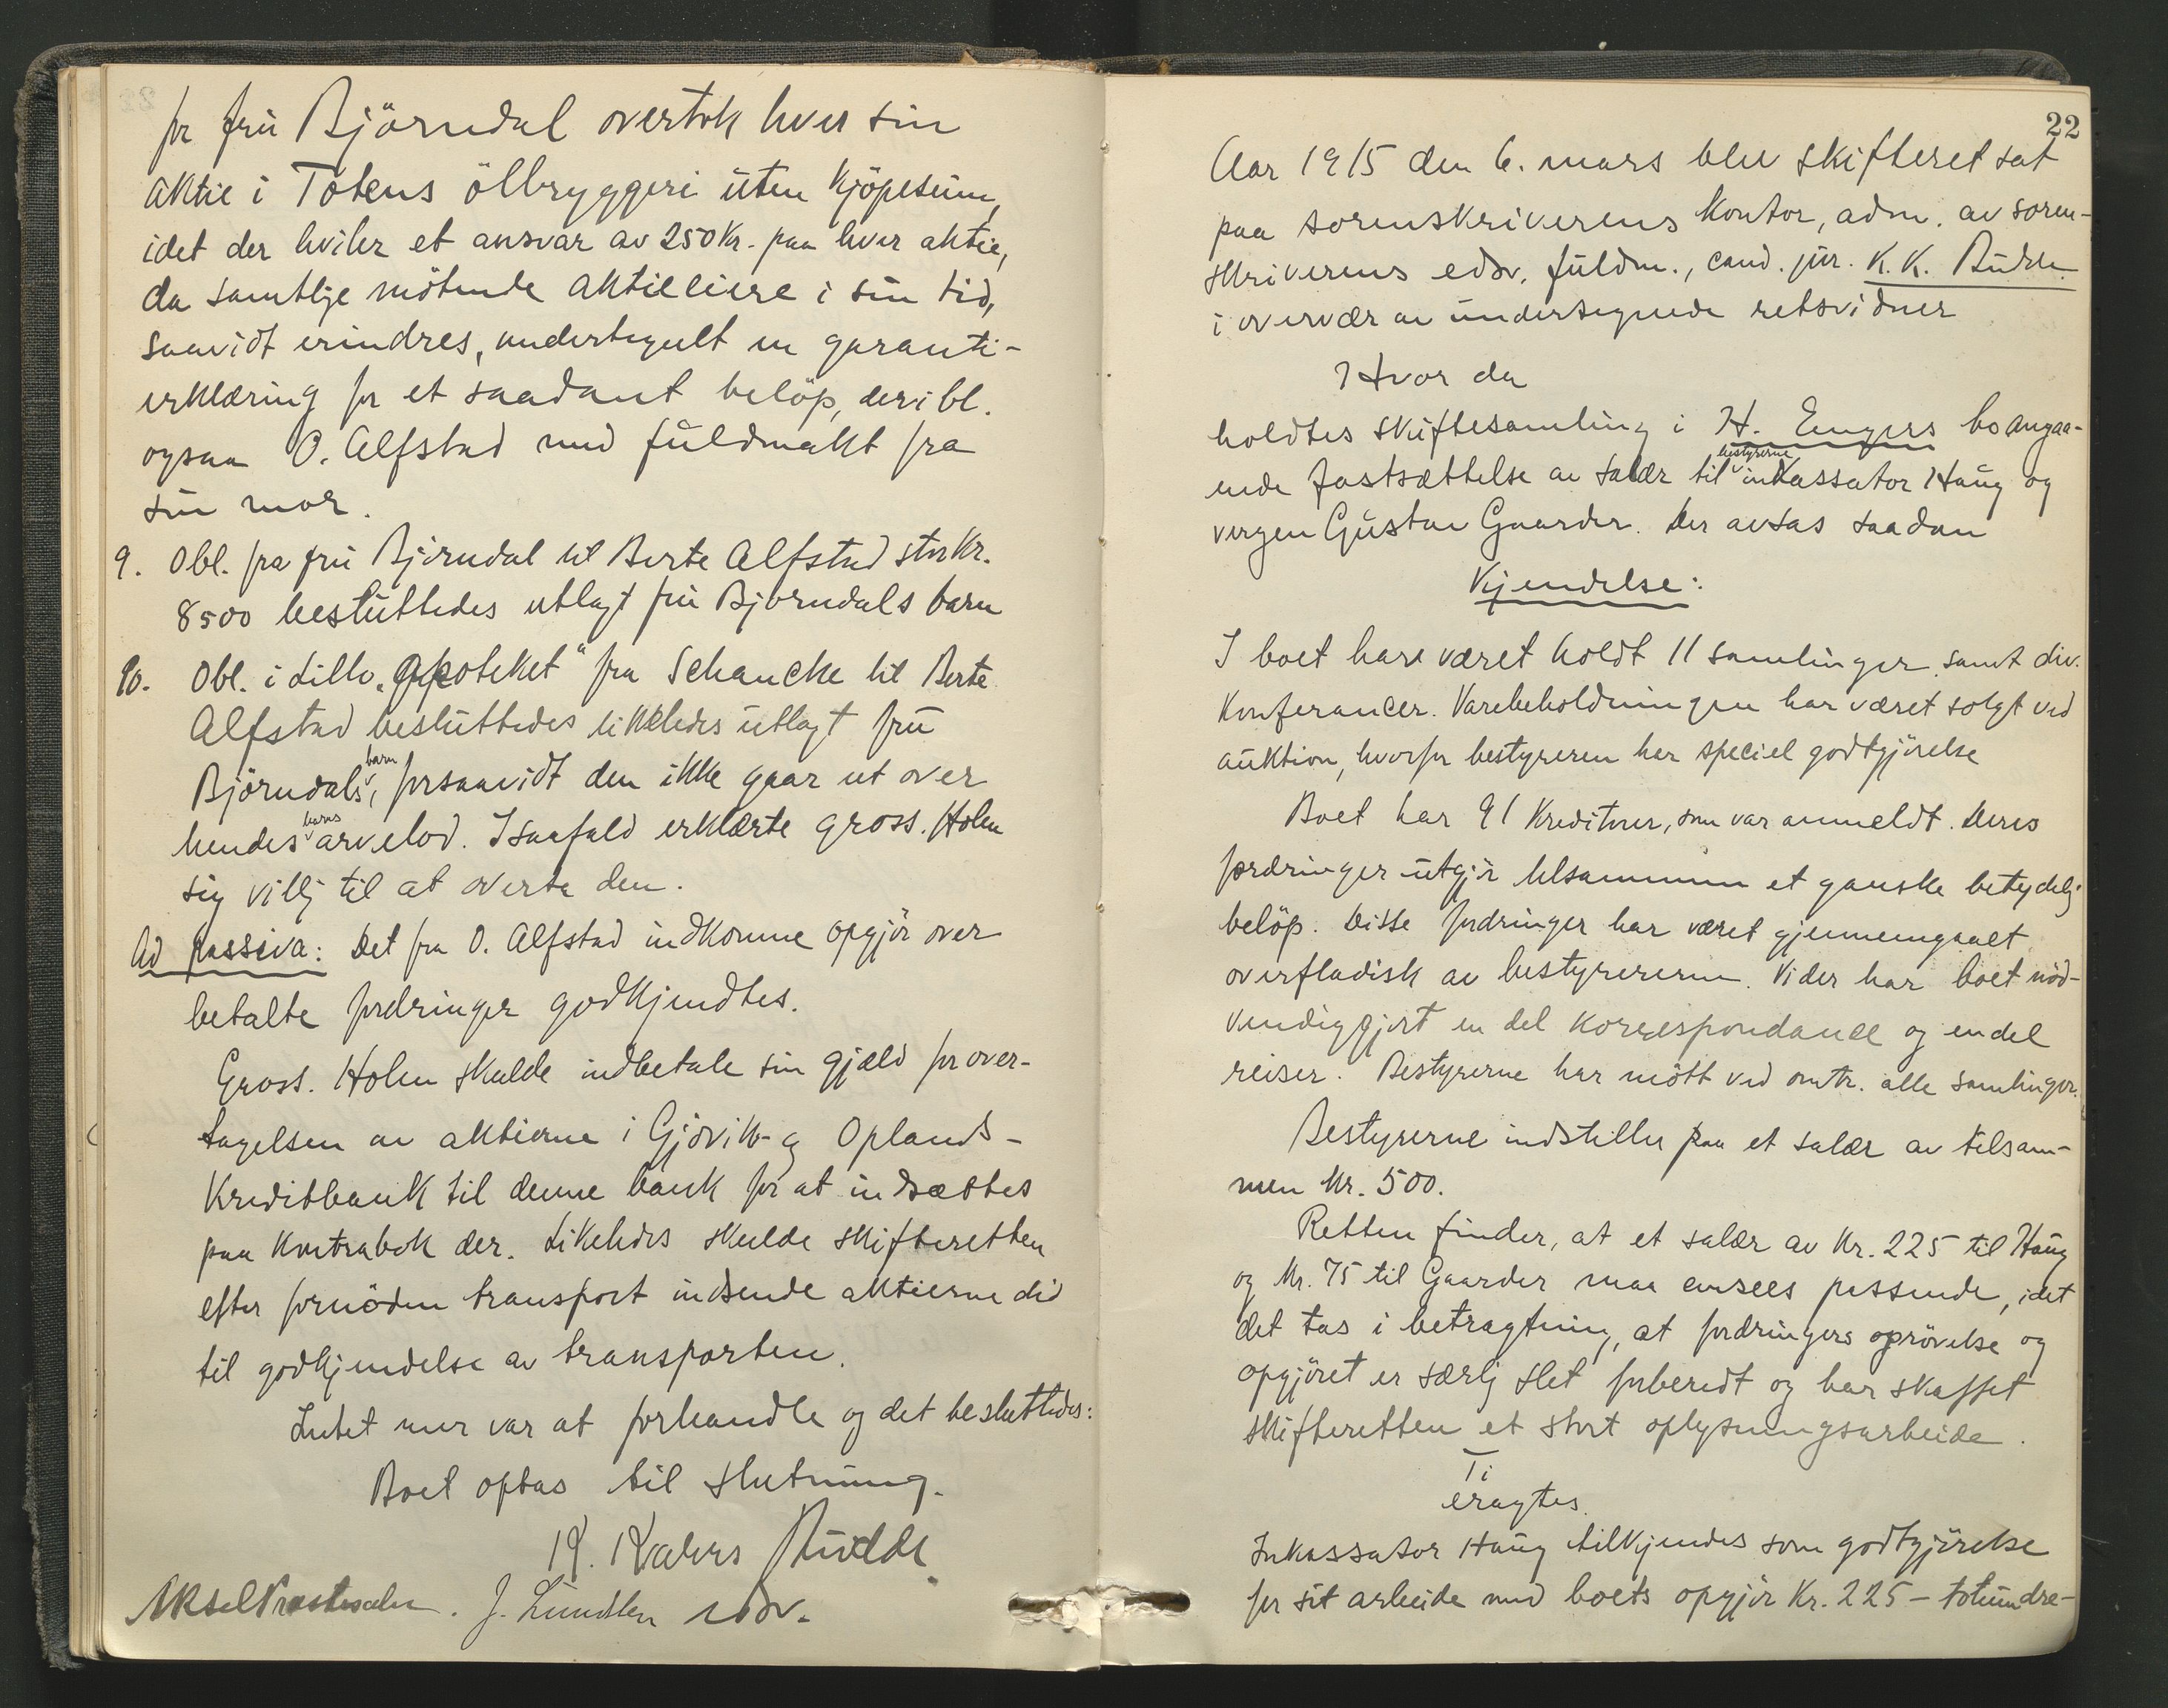 for fru Björndal overtok hver sin
aktie i Totens ölbryggeri uten kjöpesum,
idet der hviler et ansvar av 250 kr. paa hver aktie,
da samtlige mötende aktieeiere i sin tid,
saavidt erindres, undertegnet en garanti-
erklæring for et saadant belöp, deribl.
ogsaa O. Alfstad med fuldmakt fra
sin mor.
9. Obl. fra fru Björndal til Berte Alfstad stor kr.
8500 besluttedes utlagt fru Björndals barn
10. Obl. i Lilleh. „Apoteket" fra Schancke til Berte
Alfstad besluttedes likeledes utlagt fru
Björndals barn, forsaavidt den ikke gaar ut over
hendes barns arvelod. Isaafald erklærte gross. Holen
sig villig til at overta den.
Ad passiva: Det fra O. Alfstad indkomne opgjör over
betalte fordringer godkjendtes.
Gross. Holen skulde indbetale sin gjæld for over-
tagelsen av aktierne i Gjövik- og Oplands-
Kreditbank til denne bank for at indsættes
paa kontrabok der. Likeledes skulde skifteretten
efter fornöden transport indsende aktierne did
til godkjendelse av transporten.
Intet mer var at forhandle og det besluttedes:
Boet optas til slutning.
K. Kahrs Budde
Aksel . J. Lundsten edsv.
22
Aar 1915 den 6. mars blev skifteret sat
paa sorenskriverens kontor, adm. av soren-
skriverens edsv. fuldm., cand. jur. K. K. Budde
i overvær av undertegnede retsvidner
Hvor da
holdtes skiftesamling i H. Engers bo angaa-
ende fastsættelse av salær til bestyrerne inkassator Haug og
vergen Gustav Gaarder. Der avsas saadan
Kjendelse:
I boet har været holdt 11 samlinger samt div.
konferancer. Varebeholdningen har været solgt ved
auktion, hvorfor bestyreren har speciel godtgjörelse
Boet har 91 kreditorer, som var anmeldt. Deres
fordringer utgjör tilsammen et ganske betydelig
belöp. Disse fordringer har været gjennemgaaet
overfladisk av bestyrererne. Vider har boet nöd-
vendiggjort en del korrespondance og endel
reiser. Bestyrerne har mött ved omtr. alle samlinger.
Bestyrerne indstiller paa et salær av tilsam-
men kr. 500.
Retten finder, at et salær av kr. 225 til Haug
og kr. 75 til Gaarder maa ansees passende, idet
det tas i betragtning, at fordringers oprövelse og
opgjöret er særlig slet forberedt og har skaffet
skifteretten et stort oplysningsarbeide.
Ti
eragtes.
Inkassator Haug tilkjendes som godtgjörelse
for sit arbeide med boets opgjör kr. 225 – tohundre-